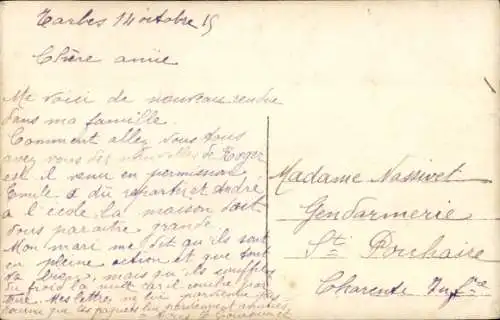 Tarbes 14 octobre 15
Chère amie
Me voici de nouveau rendue
dans ma famille.
Comment allez vous tous
avez vous des nouvelles de Roger
est il venu en permission
Emile a du repartir et André
a l'école la maison doit
vous paraitre grande.
Mon mari me dit qu'ils sont
en pleine action et que tout
va bien, mais qu'ils souffrent
du froid la nuit car il couche par
terre. Mes lettres ne lui parviennent pas
que les paquets lui parviennent
Madame Nassivet
Gendarmerie
St Porchaire
Charente Infre